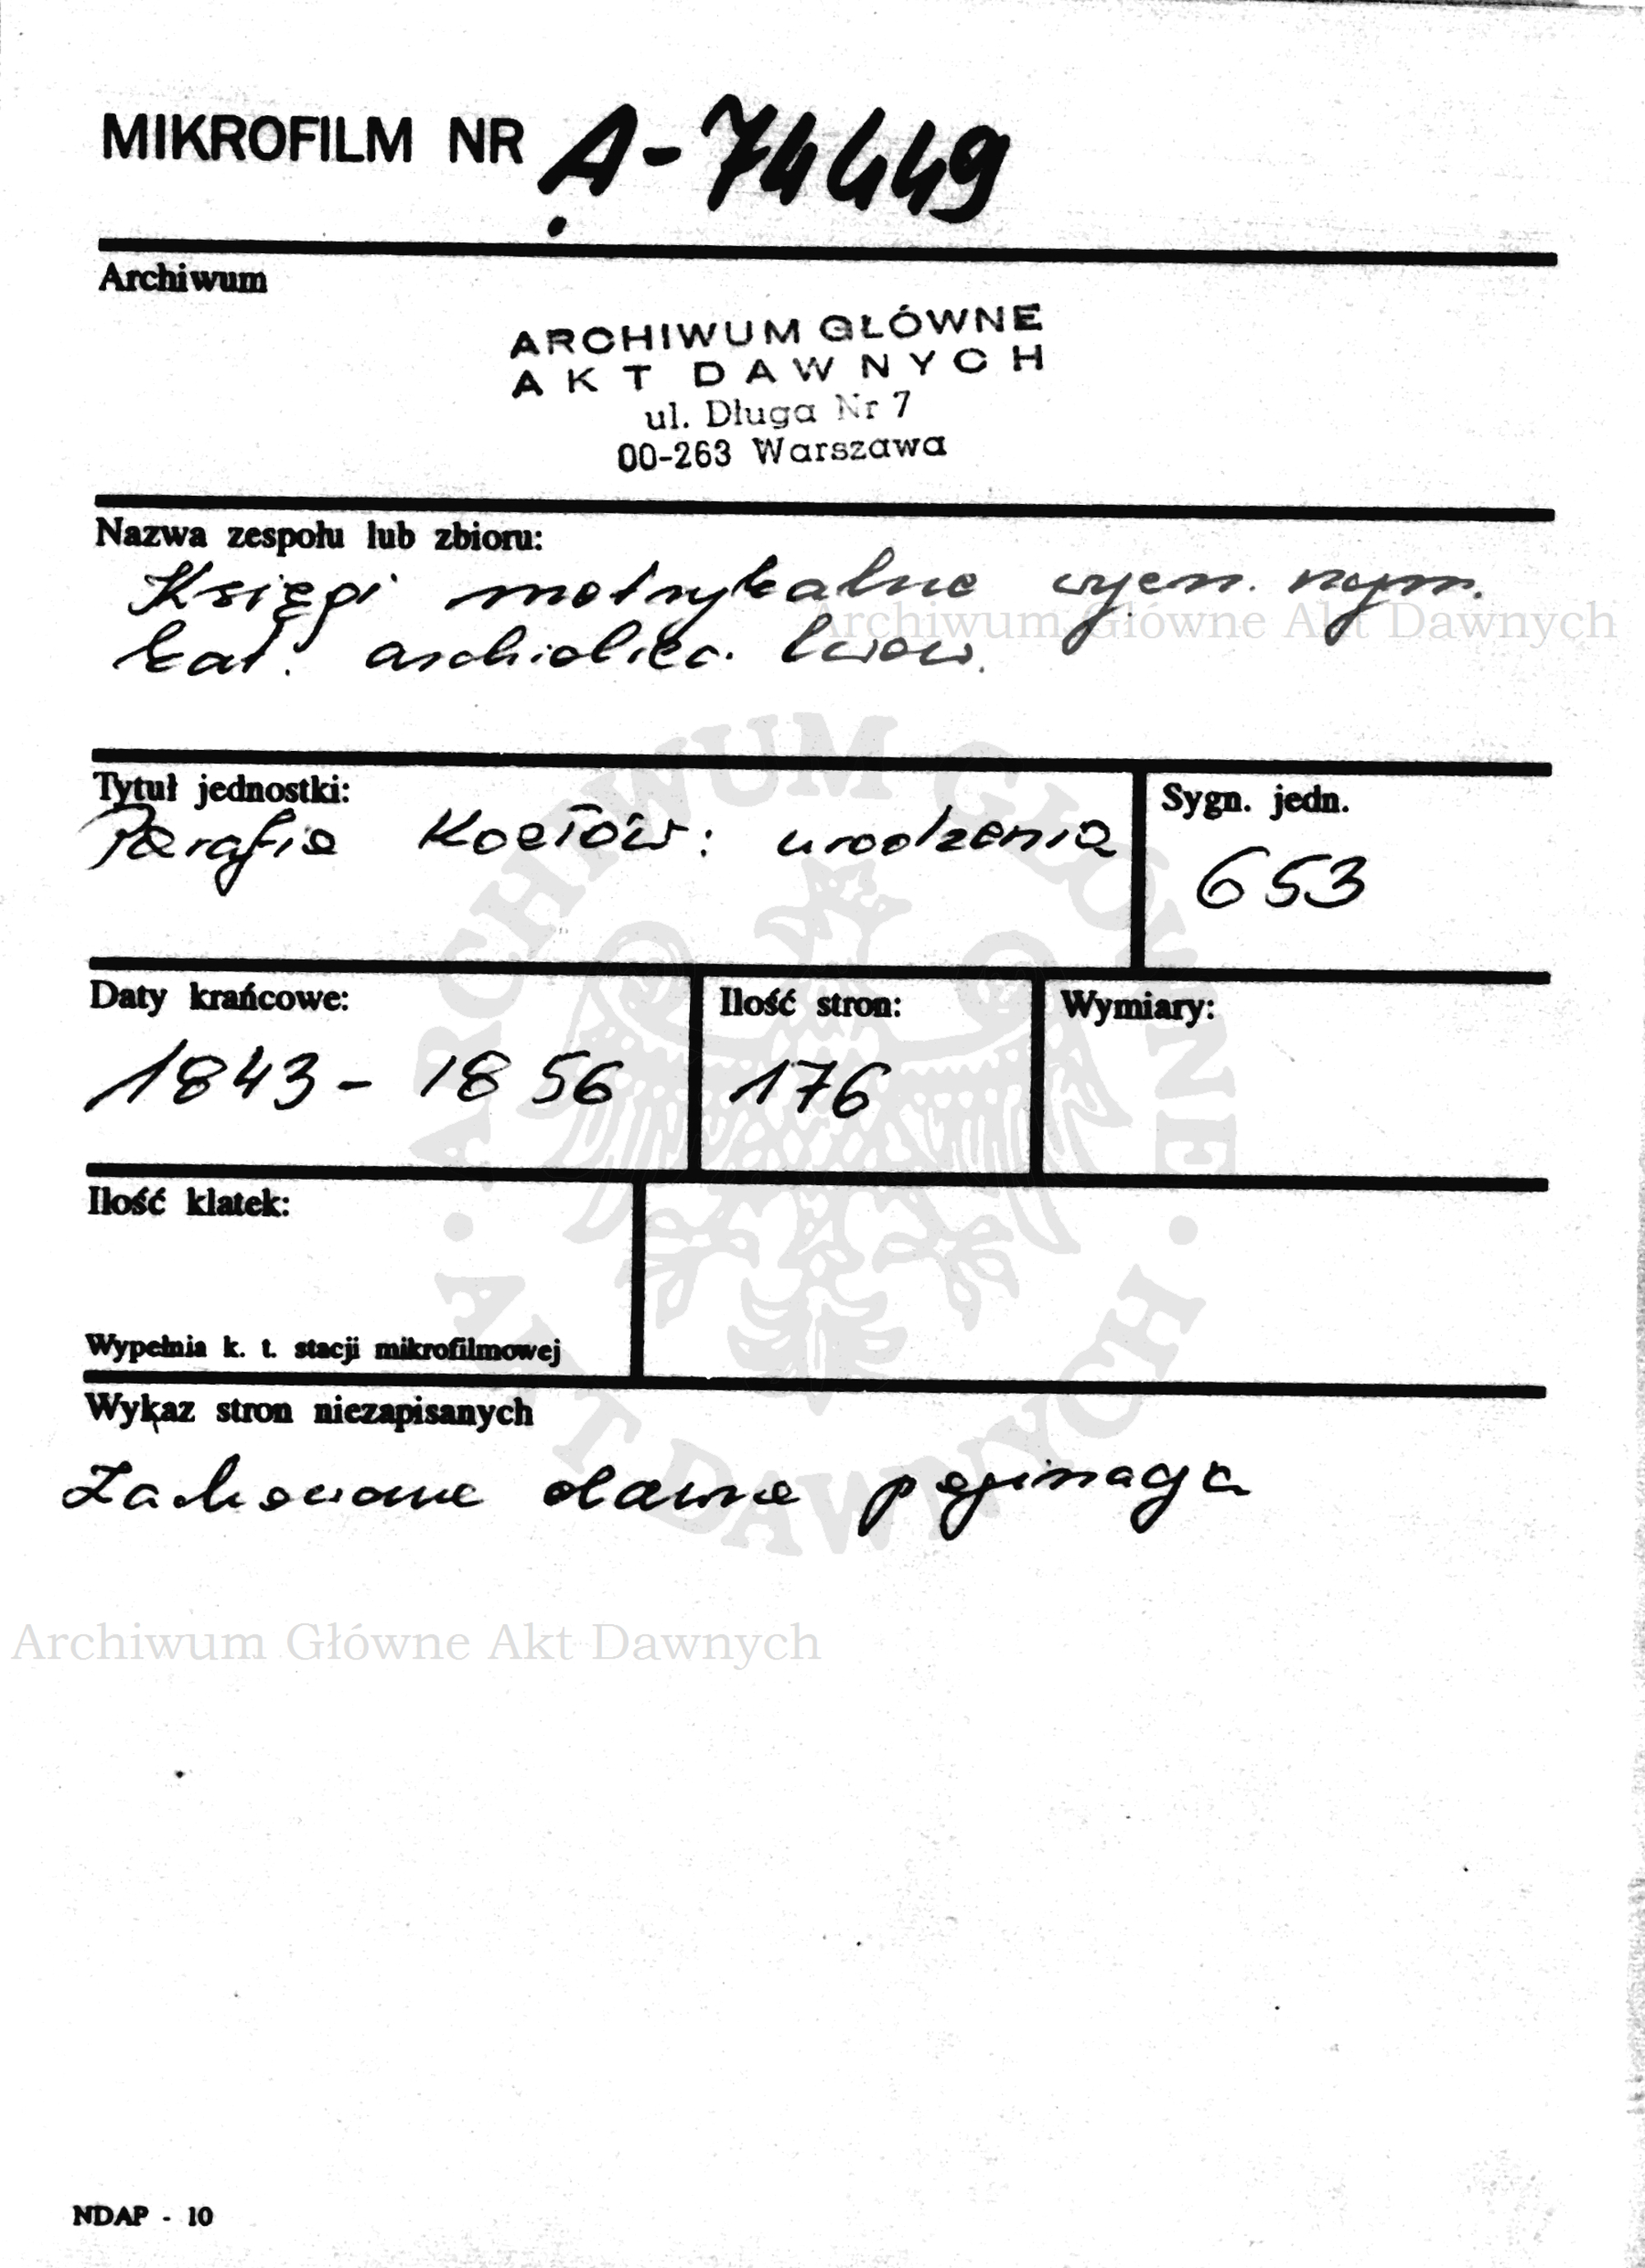 MIKROFILM NR A-74449
Archiwum
ARCHIWUM GŁÓWNE
AKT DAWNYCH
ul. Długa Nr 7
00-263 Warszawa
Nazwa zespołu lub zbioru:
Księgi metrykalne wyzn. rzym.
Archiwum Główne Akt Dawnych
kat. archidiec. lwow.
Tytuł jednostki:
Parafia Kozłów: urodzenia
Sygn. jedn.
653
Daty krańcowe:
1843 - 1856
Ilość stron:
176
Wymiary:
Ilość klatek:
Wypełnia k. t. stacji mikrofilmowej
Wykaz stron niezapisanych
Zachowana dawna paginacja
ARCHIWUM GŁÓWNE · AKT DAWNYCH ·
Archiwum Główne Akt Dawnych
NDAP - 10